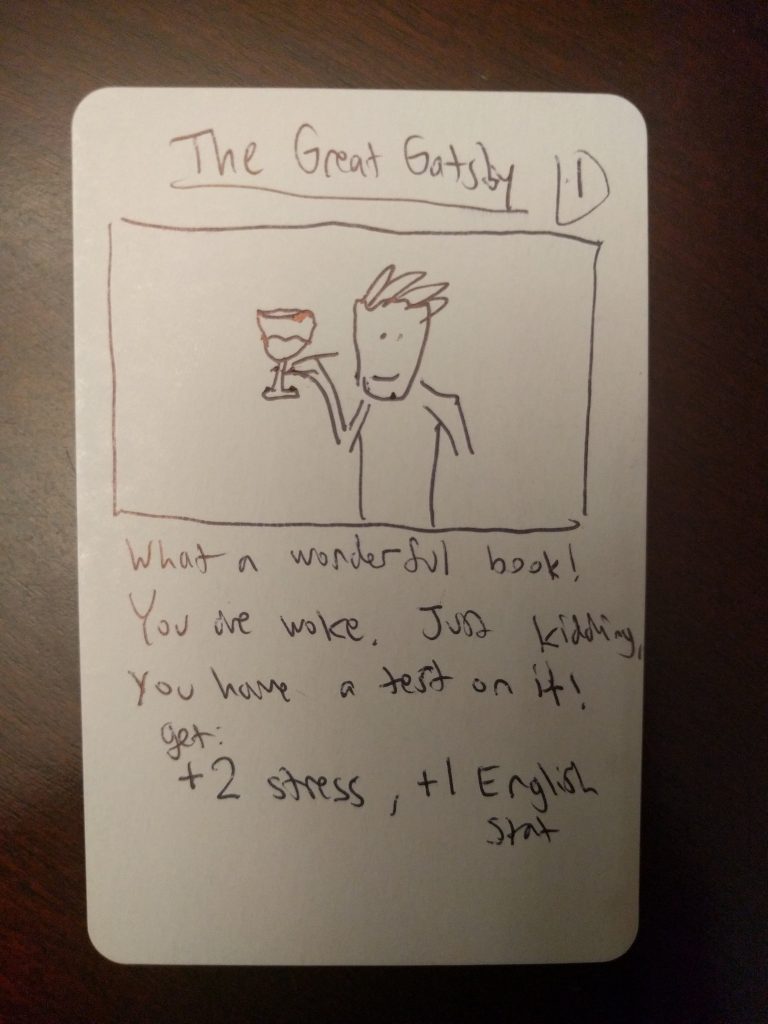 The Great Gatsby
What a wonderful book!
You are woke. Just kidding,
you have a test on it!
get:
+2 stress, +1 English
Stat